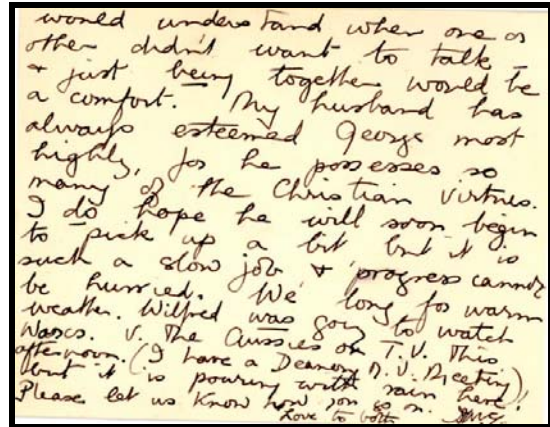 would understand when one or
other didn't want to talk –
& just being together would be
a comfort. My husband has
always esteemed George most
highly, for he possesses so
many of the Christian Virtues.
I do hope he will soon begin
to pick up a bit but it is
such a slow job & progress cannot
be hurried. We long for warm
weather. Wilfred was going to watch
v. The Aussies on T.V. This
afternoon. (I have a Deanery Meeting)
but it is pouring with rain here!
Please let us know how you go on.
Love to both